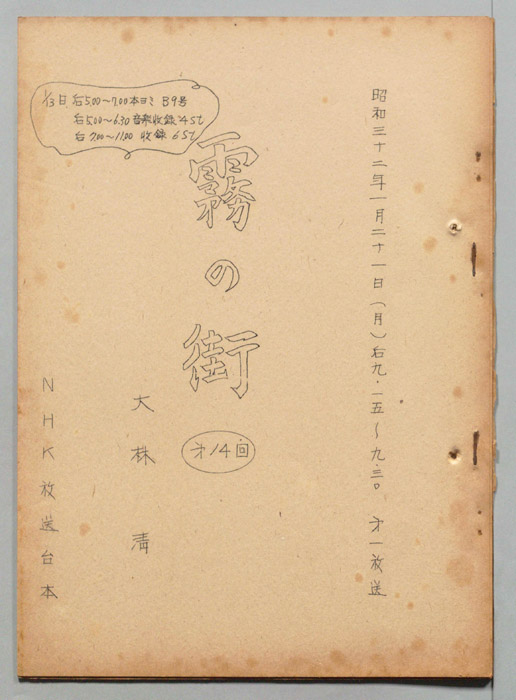 昭和三十二年一月二十一日(月)后九・一五~九・三〇 才一放送
1/13日 后5.00~7.00本ヨミ B9号
后5.00~6.30 音楽収録 4St
后7.00~11.00 収録 6St
霧の街
才14回
大林清
NHK放送台本